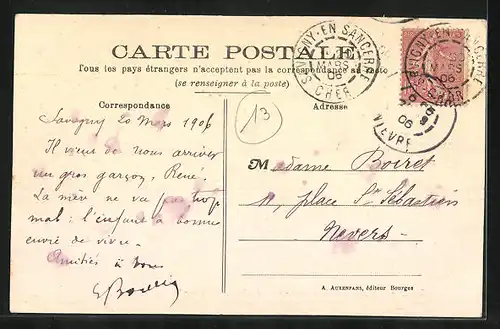 CARTE POSTALE
Tous les pays étrangers n'acceptent pas la correspondance au recto
(se renseigner à la poste)
SAVIGNY-EN-SANCERRE
MARS
06
CHER
SAVIGNY-EN-SANCERRE
MARS
06
CHER
06
NIEVRE
Correspondance
Adresse
13
Savigny 20 Mars 1906
Il vient de nous arriver
un gros garçon, René.
La mère ne va pas trop
mal : l'enfant a bonne
envie de vivre.
Amitiés à tous
Madame Boiret
11, place St Sébastien
Nevers
A. AUXENFANS, éditeur Bourges